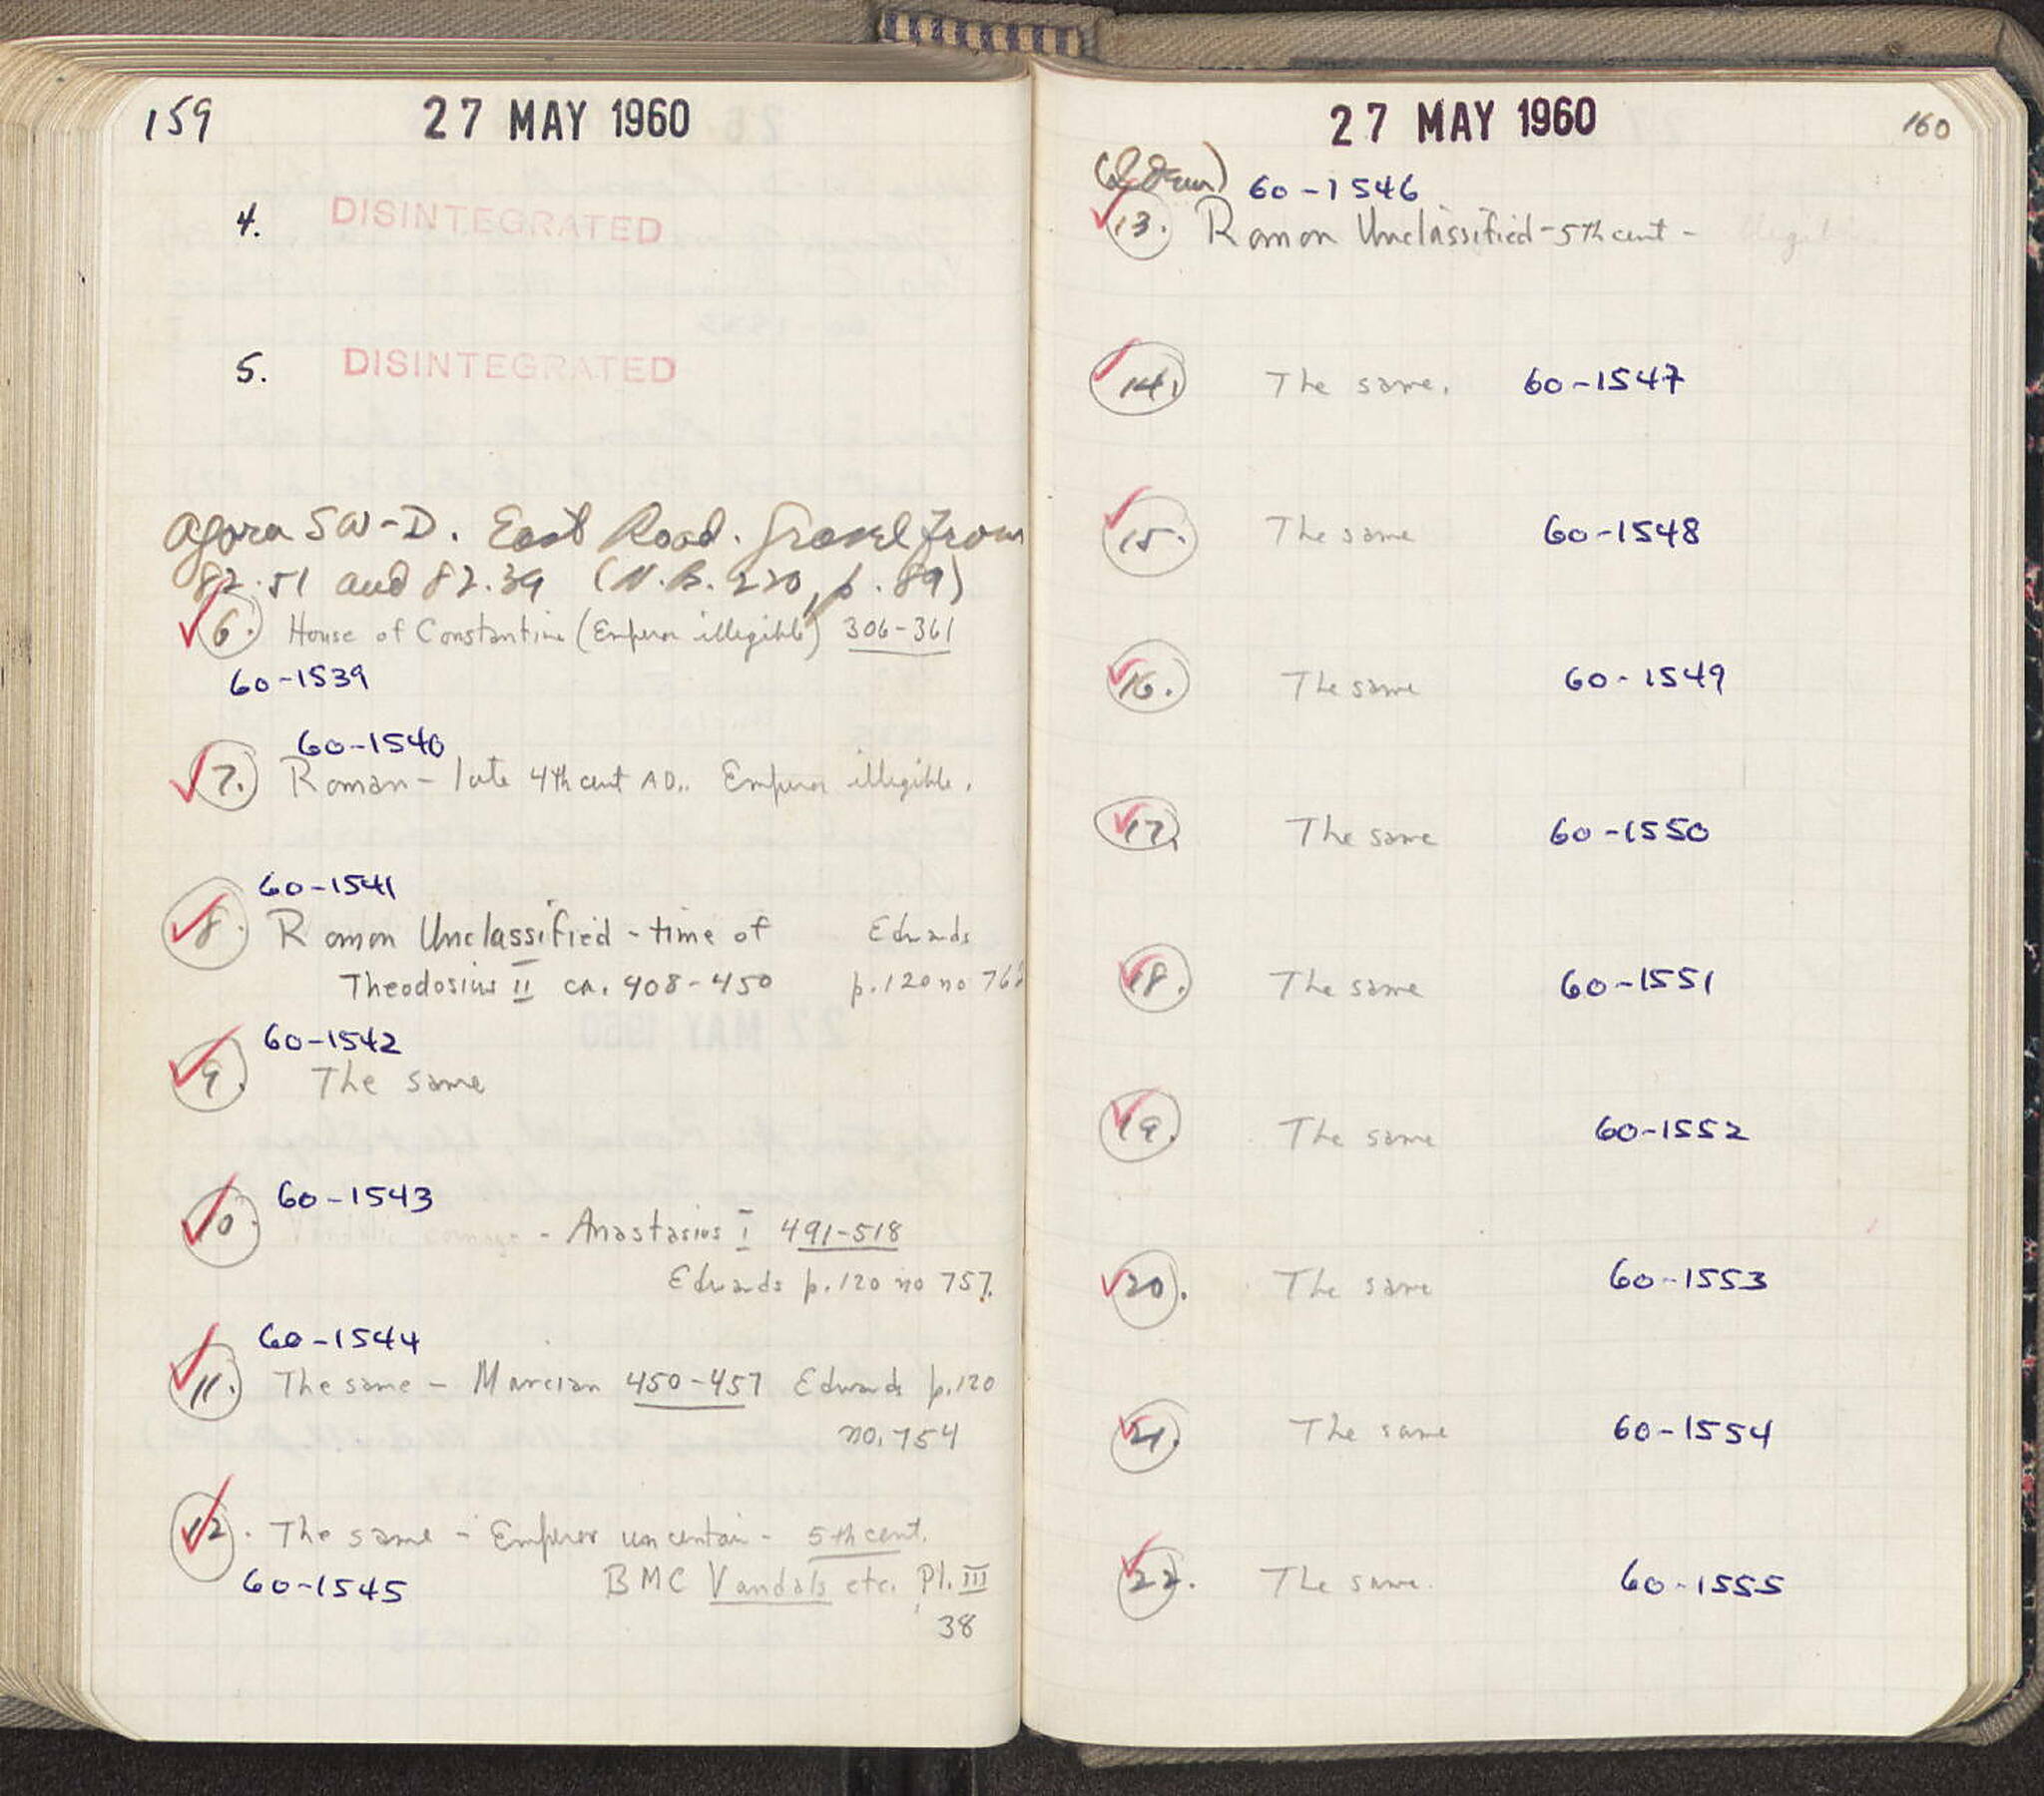 159
27 MAY 1960
4. DISINTEGRATED
5. DISINTEGRATED
Agora SW-D. East Road. Gravel from
82.51 and 82.39 (N.B. 220, p. 89)
6. House of Constantine (Emperor illegible) 306-361
60-1539
60-1540
7. Roman - late 4th cent AD. Emperor illegible.
60-1541
8. Roman Unclassified - time of Edwards
Theodosius II ca. 408-450 p. 120 no 762
60-1542
9. The same
60-1543
10. Vandalic coinage - Anastasius I 491-518
Edwards p. 120 no 757.
60-1544
11. The same - Marcian 450-457 Edwards p. 120
no. 754
12. The same - Emperor uncertain - 5th cent.
60-1545 BMC Vandals etc. Pl. III
38
27 MAY 1960
160
(Idem) 60-1546
13. Roman Unclassified - 5th cent - illegible
14. The same. 60-1547
15. The same 60-1548
16. The same 60-1549
17. The same 60-1550
18. The same 60-1551
19. The same 60-1552
20. The same 60-1553
21. The same 60-1554
22. The same. 60-1555